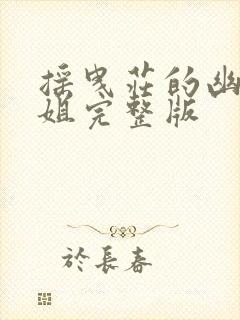 採曳荘的幽
姐完整版
於長春